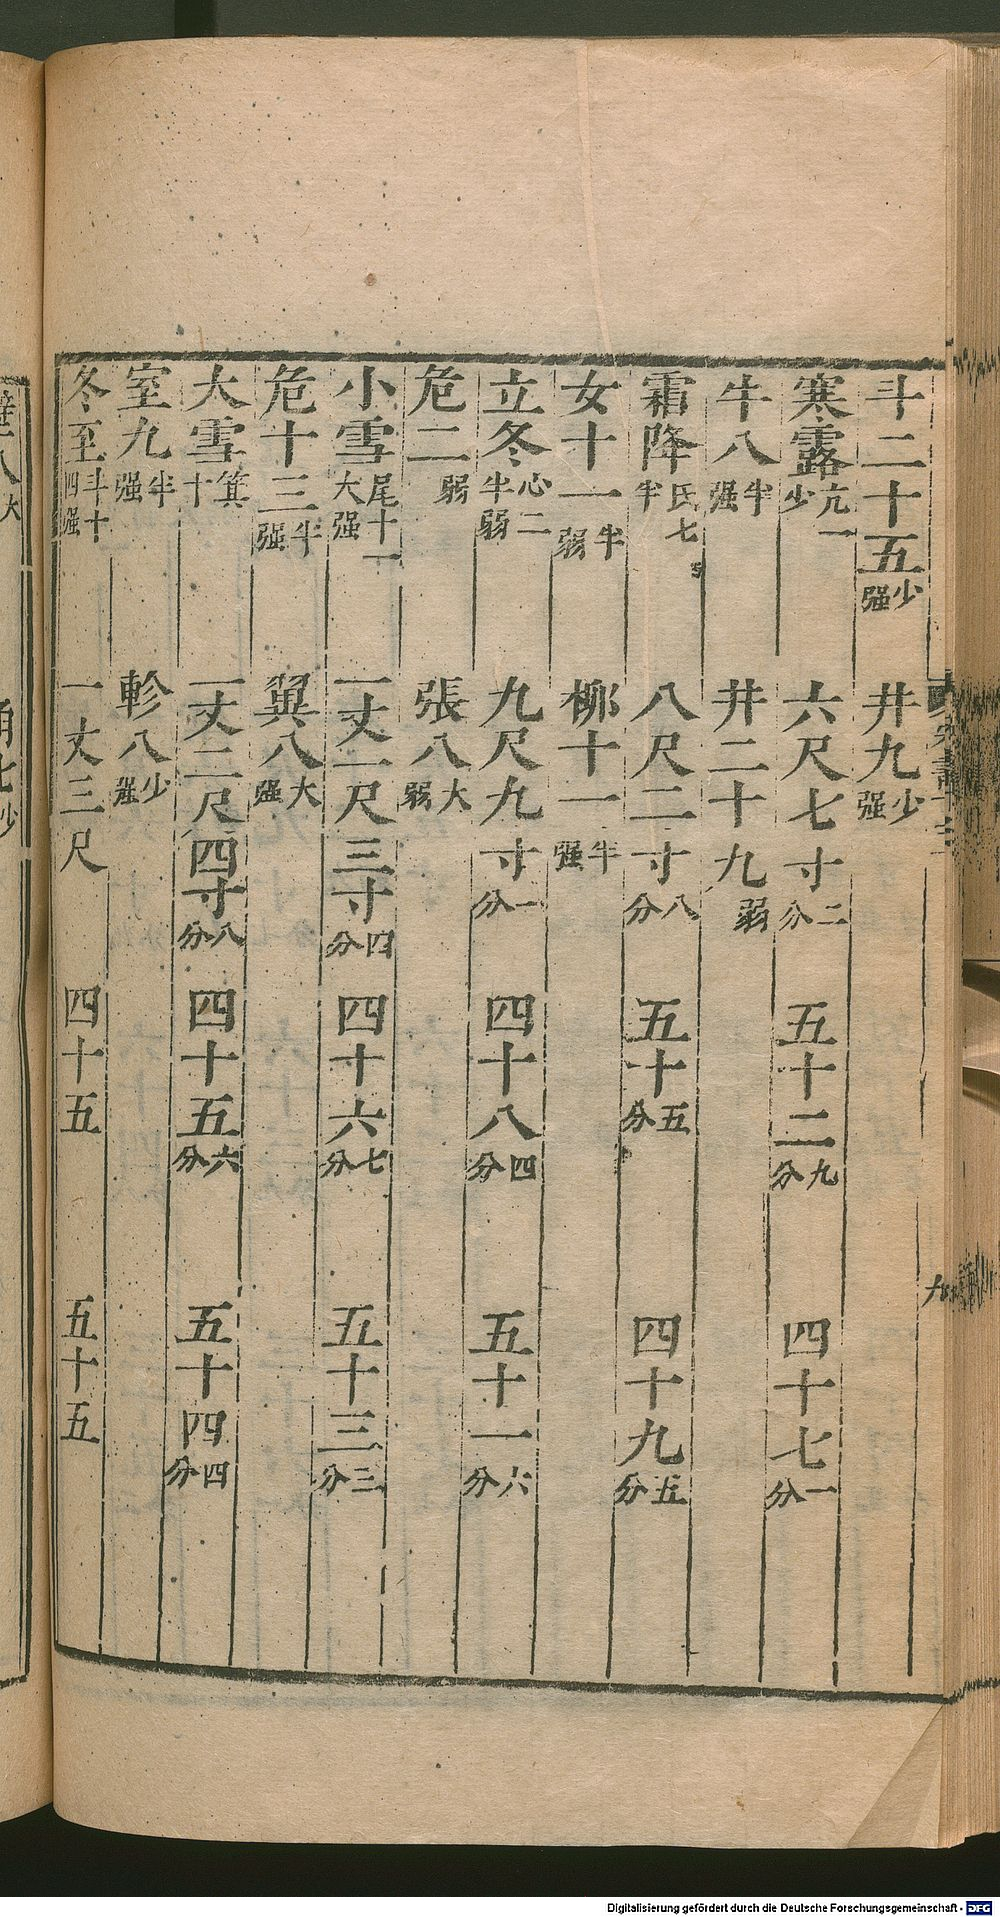 斗二十五少强 井九少强
寒露亢一少 六尺七寸二分 五十二九分 四十七一分
牛八半强 井二十九弱
霜降氐七半 八尺二寸八分 五十五分 四十九五分
女十一半弱 柳十一半强
立冬心二半弱 九尺九寸一分 四十八四分 五十一六分
危二弱 張八大弱
小雪尾十一大强 一丈一尺三寸四分 四十六七分 五十三三分
危十三半强 翼八大强
大雪箕十 一丈二尺四寸八分 四十五六分 五十四四分
室九半强 軫八少强
冬至斗十四强 一丈三尺 四十五 五十五
Digitalisierung gefördert durch die Deutsche Forschungsgemeinschaft - DFG